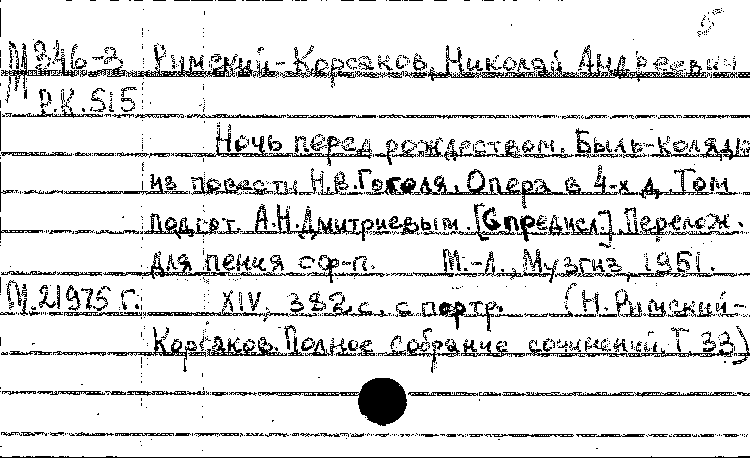 5
М 346-3 Римский-Корсаков, Николай Андреевич
Р.К.515
Ночь перед рождеством. Быль-колядка
из повести Н.В.Гоголя. Опера в 4-х д. Том
подгот. А.Н.Дмитриевым. [С предисл]. Перелож.
для пения с ф-п. М.-Л., Музгиз, 1951.
М.21975 г. XIV, 382 с. с портр. (Н.Римский-
Корсаков. Полное собрание сочинений. Т 33)